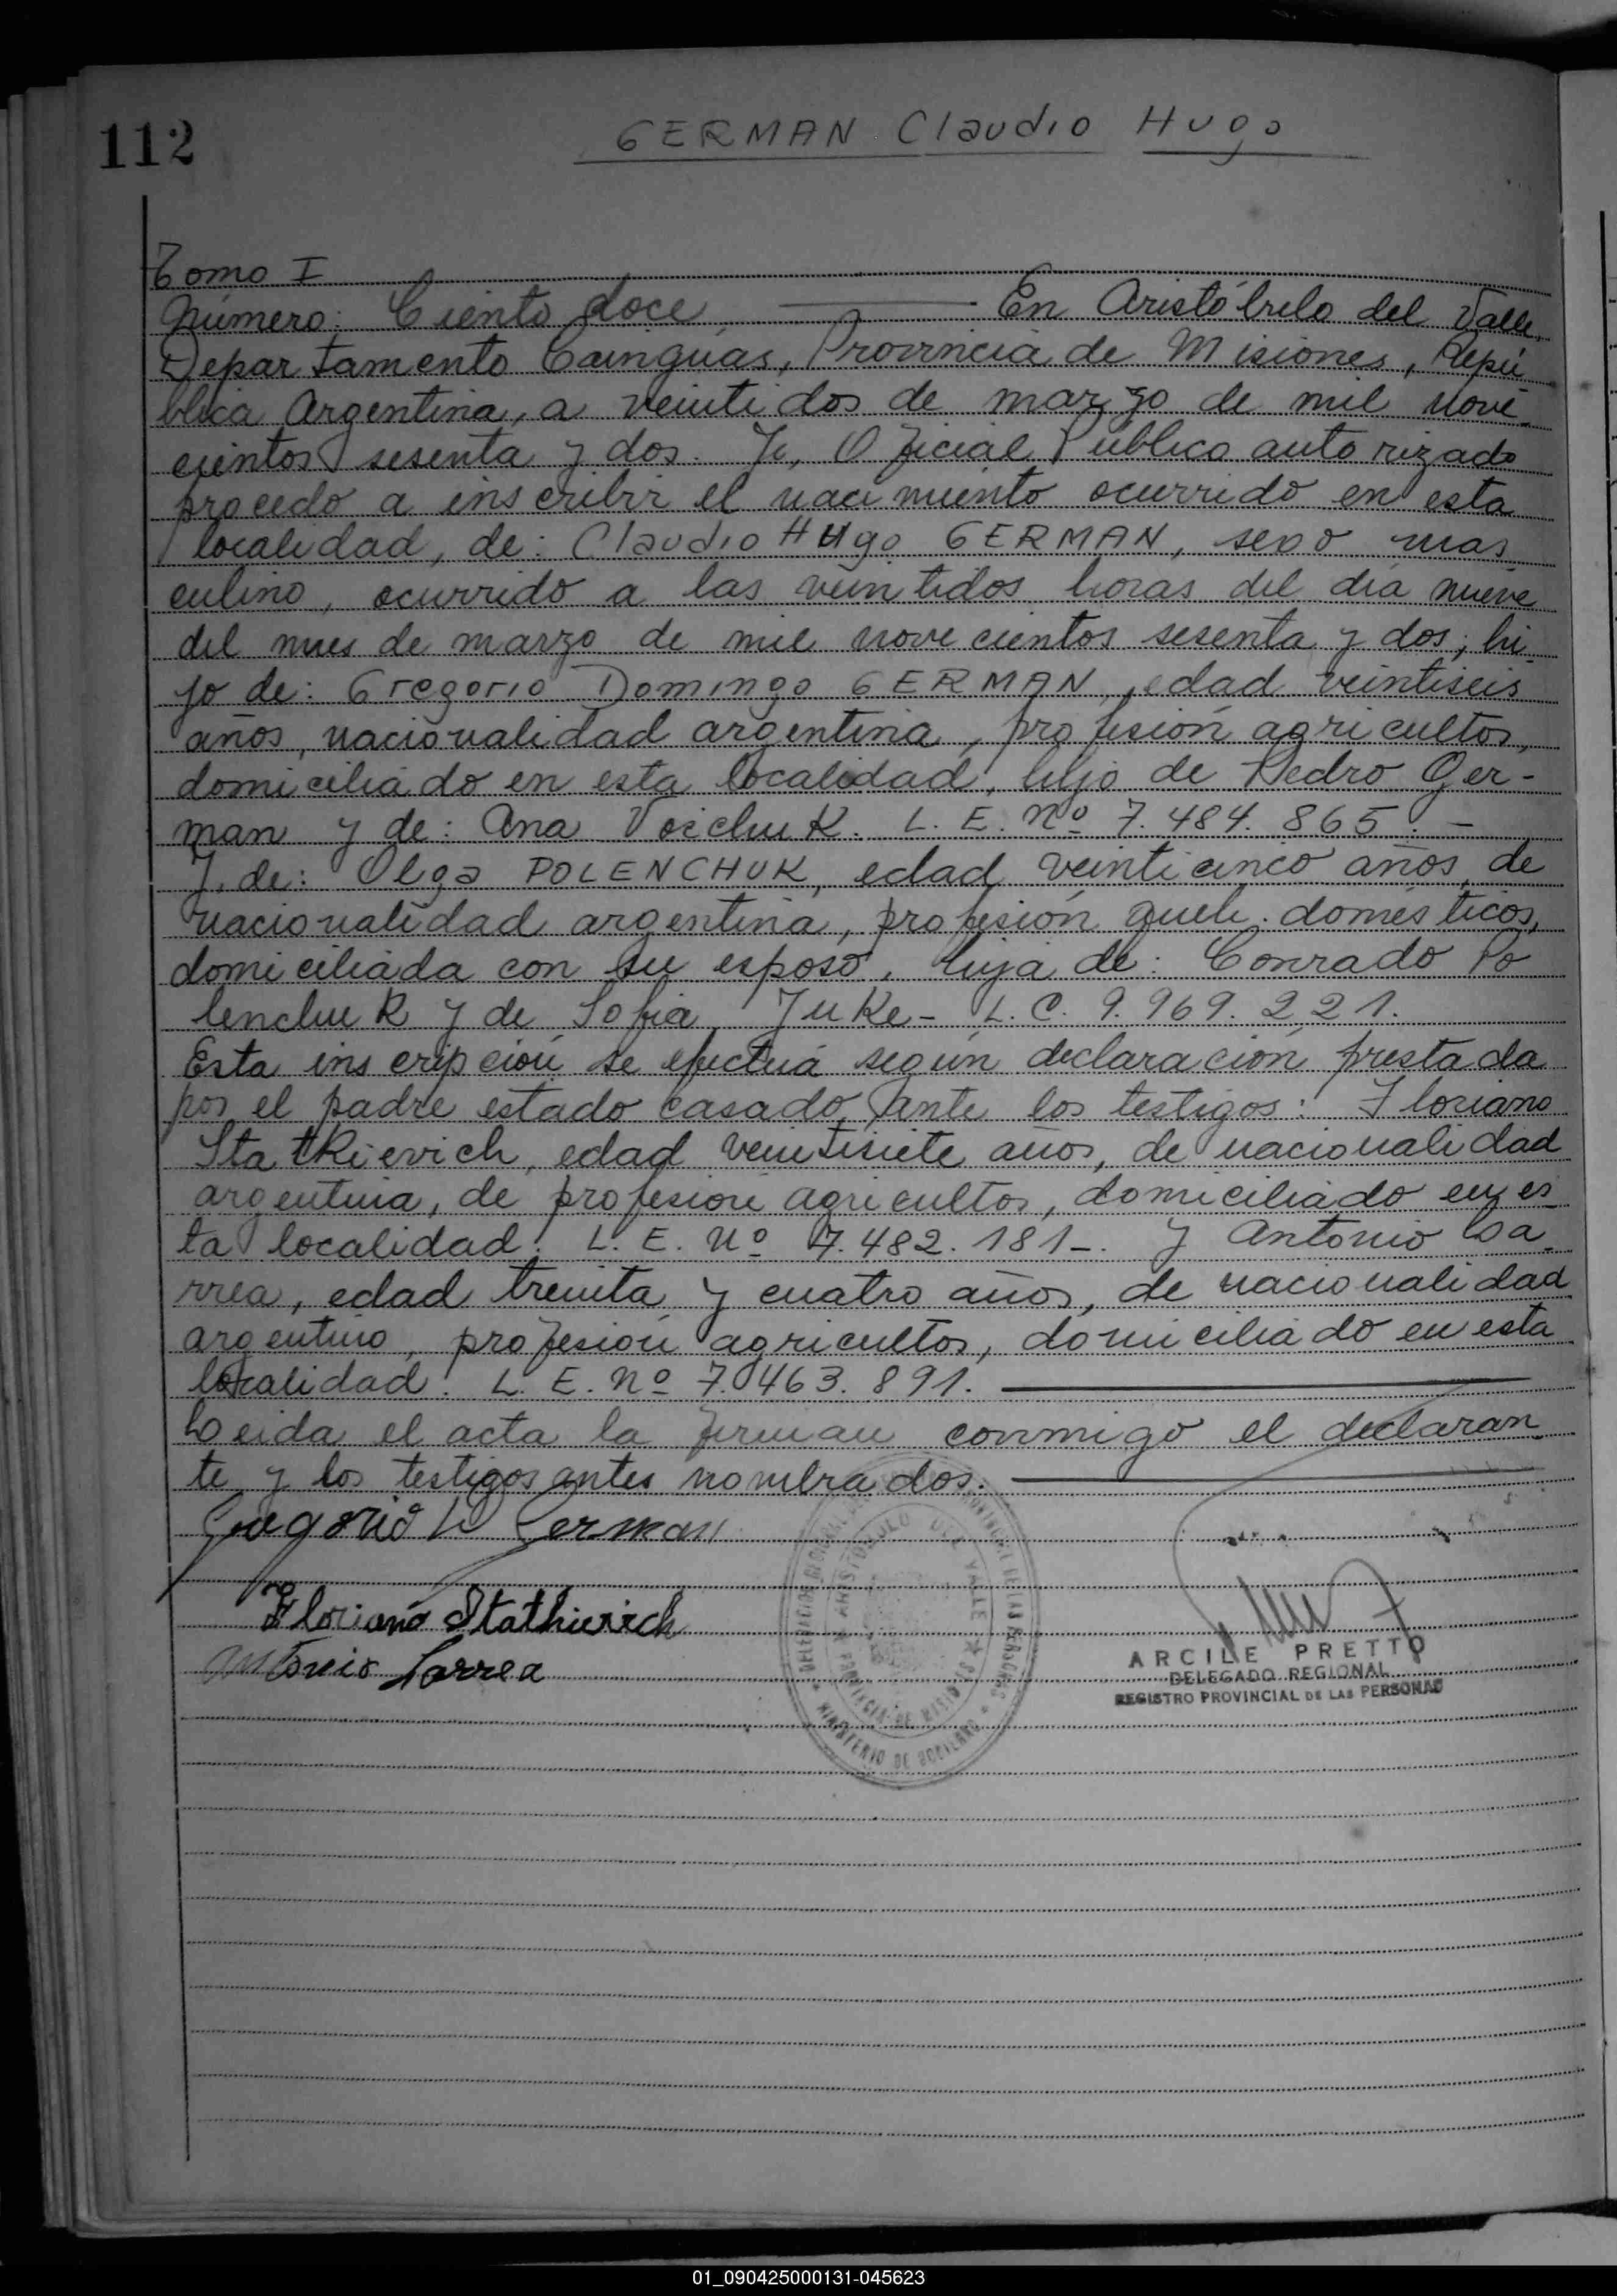 112
GERMAN Claudio Hugo
Tomo I
Número: Ciento doce En Aristóbulo del Valle,
Departamento Cainguas, Provincia de Misiones, Repú
blica Argentina, a veintidos de marzo de mil nove
cientos sesenta y dos. Yo, Oficial Público autorizado
procedo a inscribir el nacimiento ocurrido en esta
localidad, de: Claudio HUgo GERMAN, sexo mas
culino, ocurrido a las veintidos horas del día nueve
del mes de marzo de mil novecientos sesenta y dos; hi
jo de: Gregorio Domingo GERMAN, edad veintiseis
años, nacionalidad argentina, profesión agricultor,
domiciliado en esta localidad, hijo de Pedro Ger-
man y de: Ana Voichuk. L. E. Nº 7.484.865.-
Y de: Olga POLENCHUK, edad veinticinco años, de
nacionalidad argentina, profesión queh. domésticos,
domiciliada con su esposo, hija de: Conrado Po
lenchuk y de Sofia Juke- L. C. 9.969.221.
Esta inscripción se efectúa según declaración prestada
por el padre estado casado, ante los testigos: Floriano
Statkievich, edad veintisiete años, de nacionalidad
argentina, de profesión agricultor, domiciliado en es
ta localidad. L. E. Nº 7.482.181-. Y Antonio La
rrea, edad treinta y cuatro años, de nacionalidad
argentino, profesión agricultor, domiciliado en esta
localidad. L. E. Nº 7.463.891.
Leida el acta la firman conmigo el declaran
te y los testigos antes nombrados.
Gregorio D German
Floriano Stathievich
Antonio Larrea
ARISTOBULO DEL VALLE
PROVINCIA DE MISIONES
MINISTERIO DE GOBIERNO
ARCILE PRETTO
DELEGADO REGIONAL
REGISTRO PROVINCIAL DE LAS PERSONAS
01_090425000131-045623